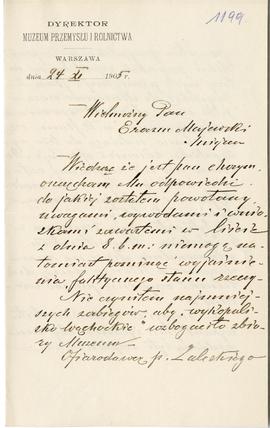 1199
DYREKTOR
MUZEUM PRZEMYSŁU I ROLNICTWA
WARSZAWA
dnia 24 XI 1905 r.
Wielmożny Pan
Erazm Majewski
w miejscu
Wiedząc że jest pan chorym,
oszczędzam Mu odpowiedzi
do jakiej zostałem powołany
uwagami, wywodami i wnio-
skami zawartemi w liście
z dnia 8. b.m: niemogę na-
tomiast pominąć wyjaśnie-
nia faktycznego stanu rzeczy.
Nie czyniłem najmniej-
szych zabiegów, aby "wykopali-
sko wąchockie" wzbogaciło zbio-
ry Muzeum
Ofiarodawca p. Zaleskiego